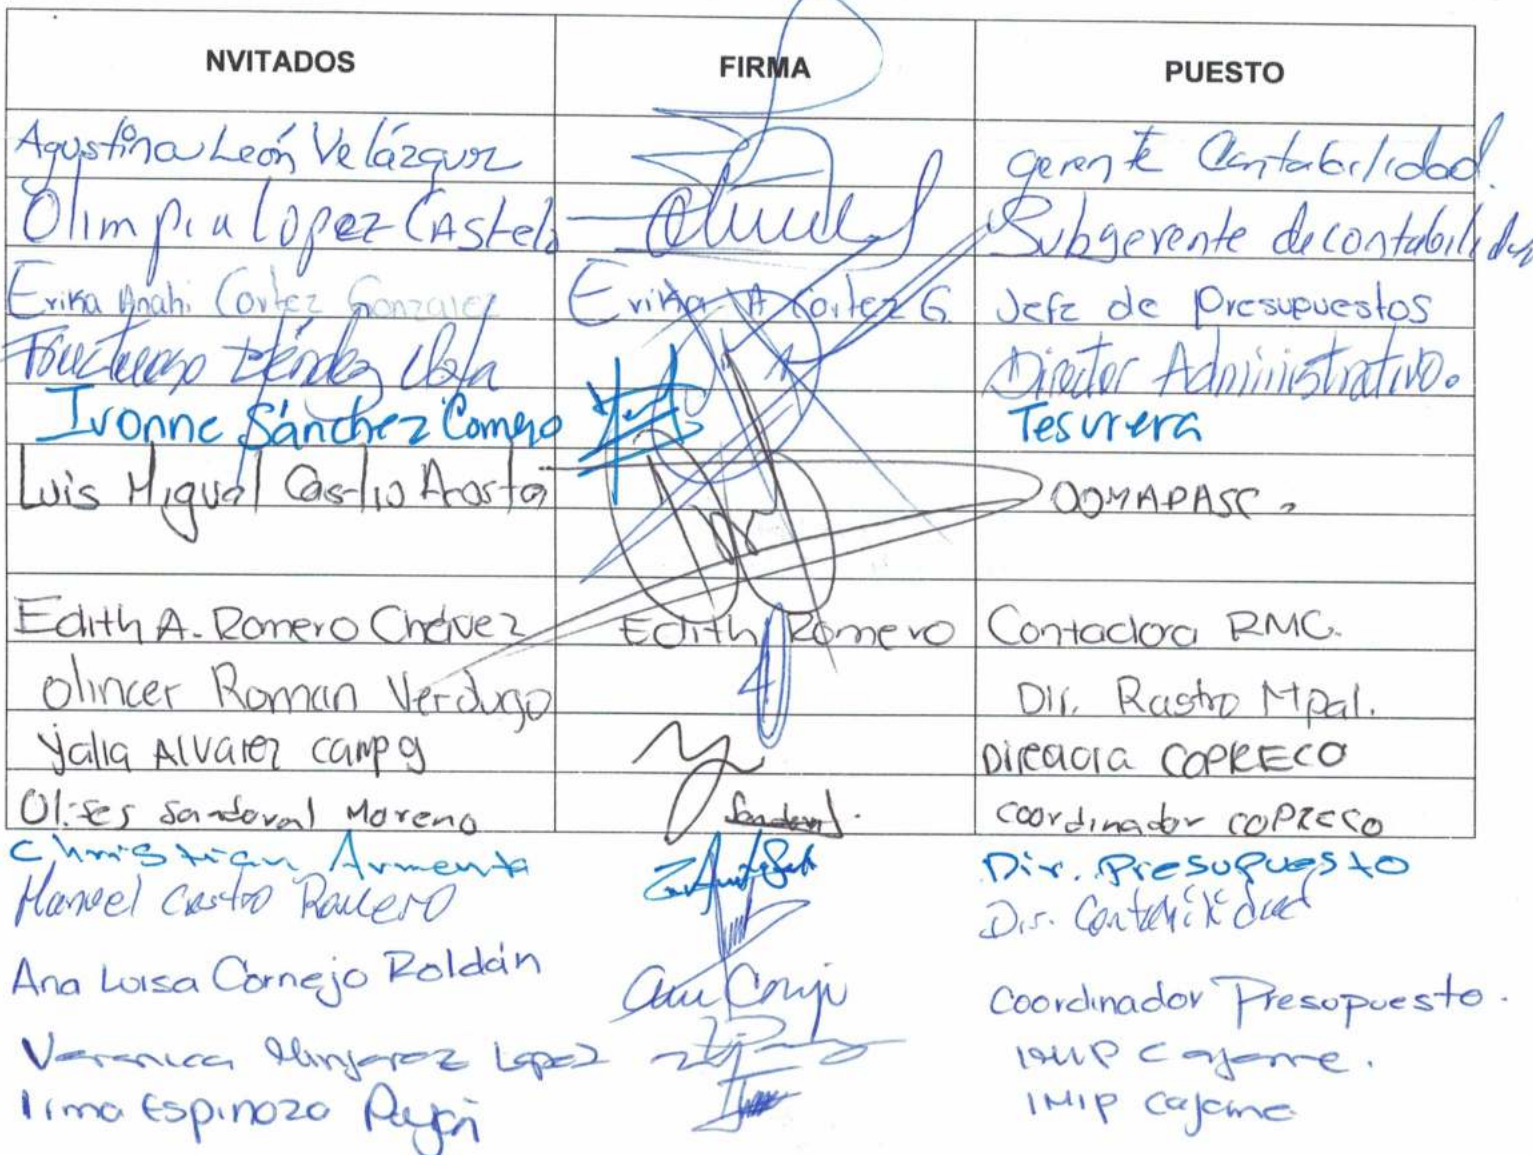 NVITADOS FIRMA PUESTO
Agustina León Velázquez gerente Contabilidad.
Olimpia Lopez Castelo Subgerente de contabilidad
Erika Anahi Cortez Gonzalez Erika A Cortez G. Jefe de Presupuestos
Fructuoso Méndez Director Administrativo.
Ivonne Sánchez Romero Tesorera
Luis Miguel Castro Acosta OOMAPASC.
Edith A. Romero Chávez Edith Romero Contadora RMC.
Olincer Roman Verdugo Dir. Rastro Mpal.
Yalia Alvarez campo Directora COPRECO
Olises Sandoval Moreno Sandoval. coordinador COPRECO
Christian Armenta Dir. Presupuesto
Manuel Castro Dir. Contabilidad
Ana Luisa Cornejo Roldán Ana Cornejo Coordinador Presupuesto.
Veronica Minjarez Lopez IMIP Cajeme.
Irma Espinoza Payán IMIP Cajeme